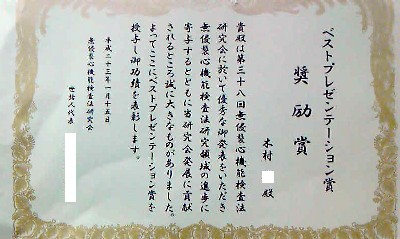 ベストプレゼンテーション賞
奨励賞
木村 殿
貴殿は第三十八回無侵襲心機能検査法
研究会に於いて優秀な御発表をいただき
無侵襲心機能検査法研究領域の進歩に
寄与するとともに当研究会発展に貢献
されるところ誠に大きなものがありました。
よってここにベストプレゼンテーション賞を
授与し御功績を表彰します。
平成二十三年一月十五日
無侵襲心機能検査法研究会
世話人代表